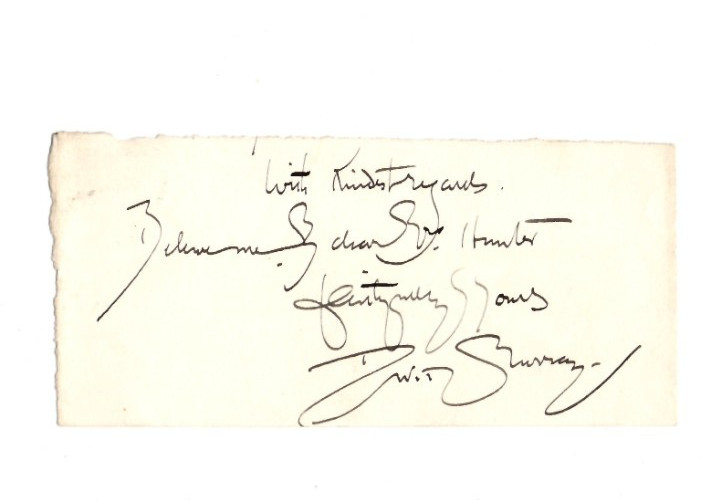 With Kindest regards.
Believe me, dear Hunter
faithfully Yours
Murray.